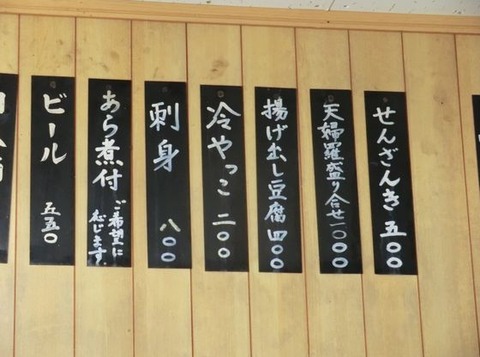 せんざんき 五〇〇
天婦羅盛り合せ 一〇〇〇
揚げ出し豆腐 四〇〇
冷やっこ 二〇〇
刺身 八〇〇
あら煮付 ご希望に
応じます。
ビール 五五〇